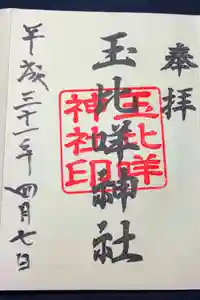 奉拝
玉比咩神社
玉比咩
神社印
平成三十一年四月七日